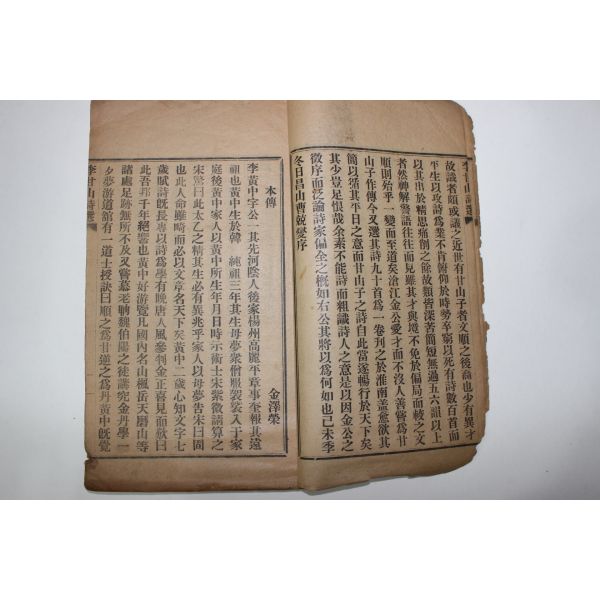 李甘山詩選
故識者頗或議之近世有甘山子者文順之後裔也少有異才
平生以攻詩爲業不肯俯仰於時勢卒窮以死有詩數百首而
以其出於精思痛創之餘故類皆深苦簡短無過五六韻以上
者然神解警語往往而見雖其才與境不免於偏局而較之文
順則始乎一變而至道矣滄江金公愛才而不沒人善嘗爲甘
山子作傳今又選其詩九十首爲一卷刊之於淮南蓋愈欲其
簡以答其平日之意而甘山子之詩自此當遂暢行於天下矣
其少豈足恨哉余素不能詩而粗識詩人之意是以因金公之
徵序而泛論詩家偏全之槪如右公其將以爲何如也己未季
冬日昌山曹兢燮序
本傳
金澤榮
李黃中字公一其先河陰人後家楊州高麗平章事奎報其遠
祖也黃中生於韓 純祖三年其生母夢衆僧服袈裟入于家
庭後黃中家人以黃中所生年月日時示術士宋紫微請算之
宋驚曰此太乙之精其生必有異兆乎家人以母夢告宋曰固
也此人命雖畸而必以文章名天下矣黃中二歲心知文字七
歲賦詩旣長專以詩爲學有晩唐人風參判金正喜見而歎曰
此吾邦千年絕響也黃中好游覽凡國內名山楓岳天磨山等
諸處足跡無所不及又嘗慕老聃魏伯陽之徒講究金丹學一
夕夢游道館有一道士授訣曰順之爲甘逆之爲丹黃中旣覺
李甘山詩選